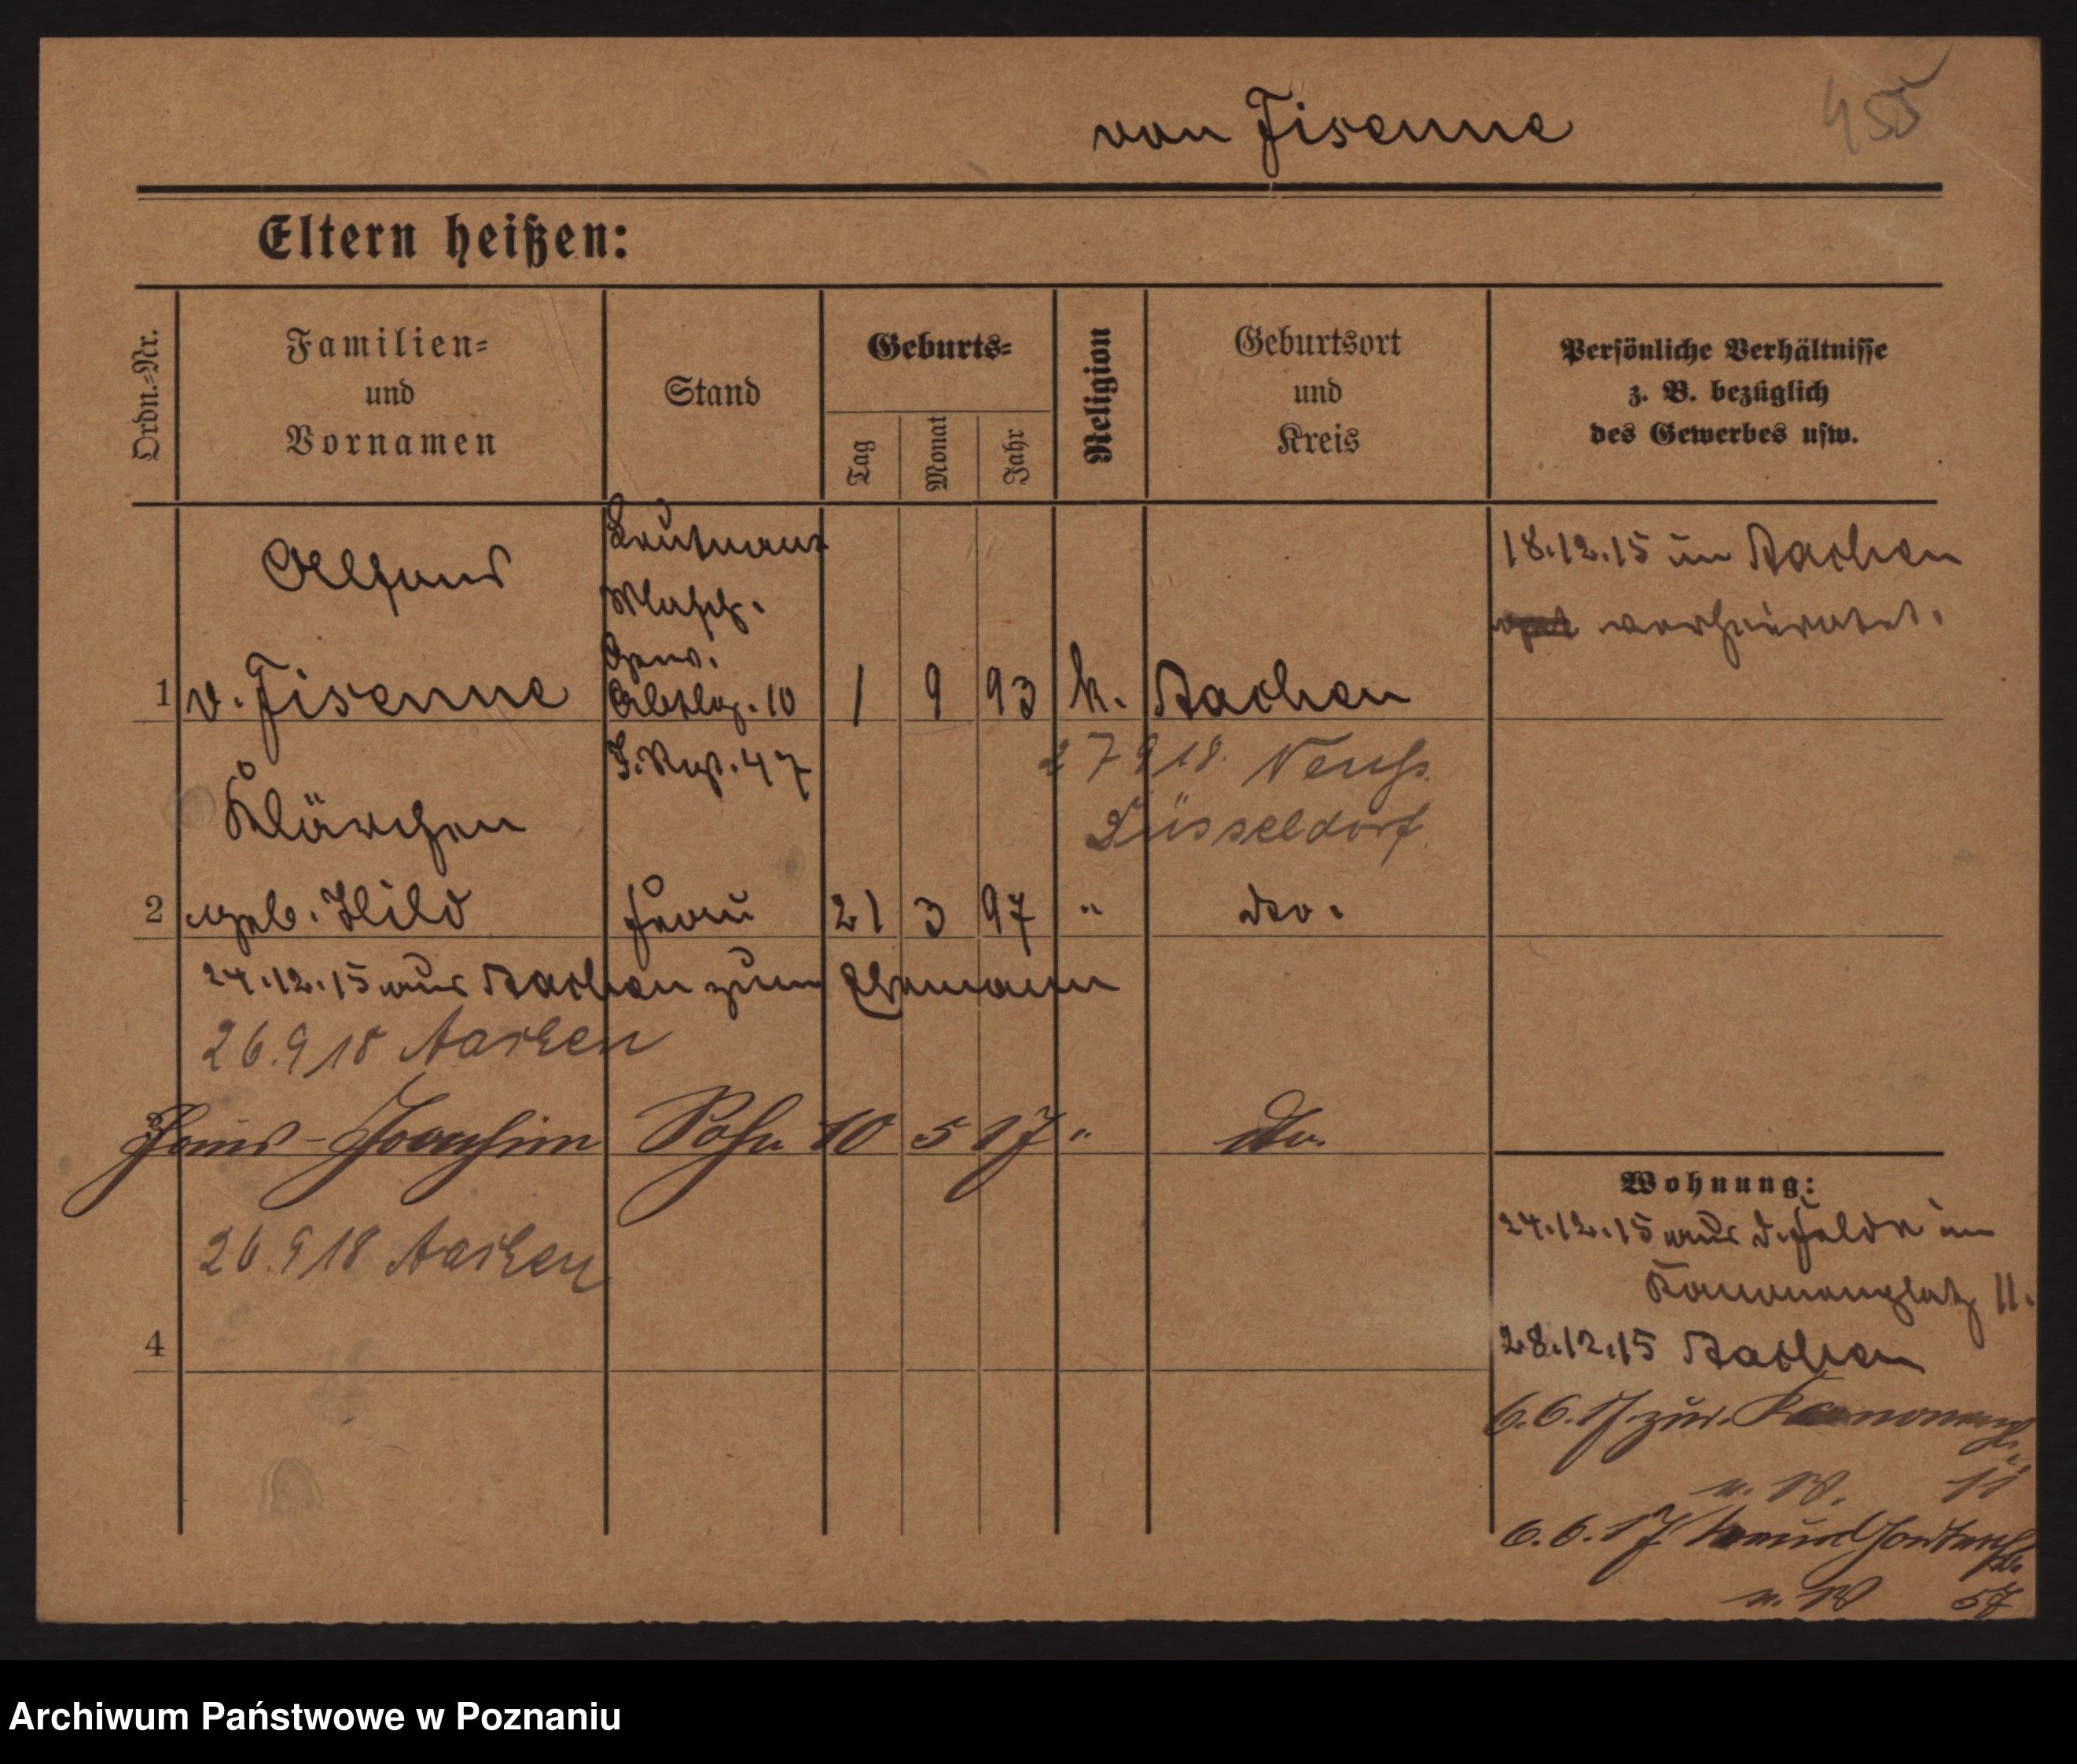 von Fisenne 455
Eltern heißen:
Ordn.-Nr.
Familien-
und
Vornamen
Stand
Geburts-
Tag
Monat
Jahr
Religion
Geburtsort
und
Kreis
Persönliche Verhältnisse
z. B. bezüglich
des Gewerbes usw.
Leutnant
Alfons
Masch.
Gew.
1 v. Fisenne Abtlg. 10 1 9 93 k. Aachen
18.12.15 in Aachen
verheiratet.
J. Rgt. 47
27 9 18. Neuss.
Düsseldorf.
Klärchen
2 geb. Hild Frau 21 3 97 " do.
24.12.15 aus Aachen zum Ehemann
26.9 18 Aachen
3 Hans-Joachim Sohn 10 5 17 " do.
26.9 18 Aachen
4
Wohnung:
24.12.15 aus d. Felde in
Kanonenplatz 11.
28.12.15 Aachen
6.6.17 zur. Kanonenpl.
u. W. 11
6.6.17
u. W 57
Archiwum Państwowe w Poznaniu